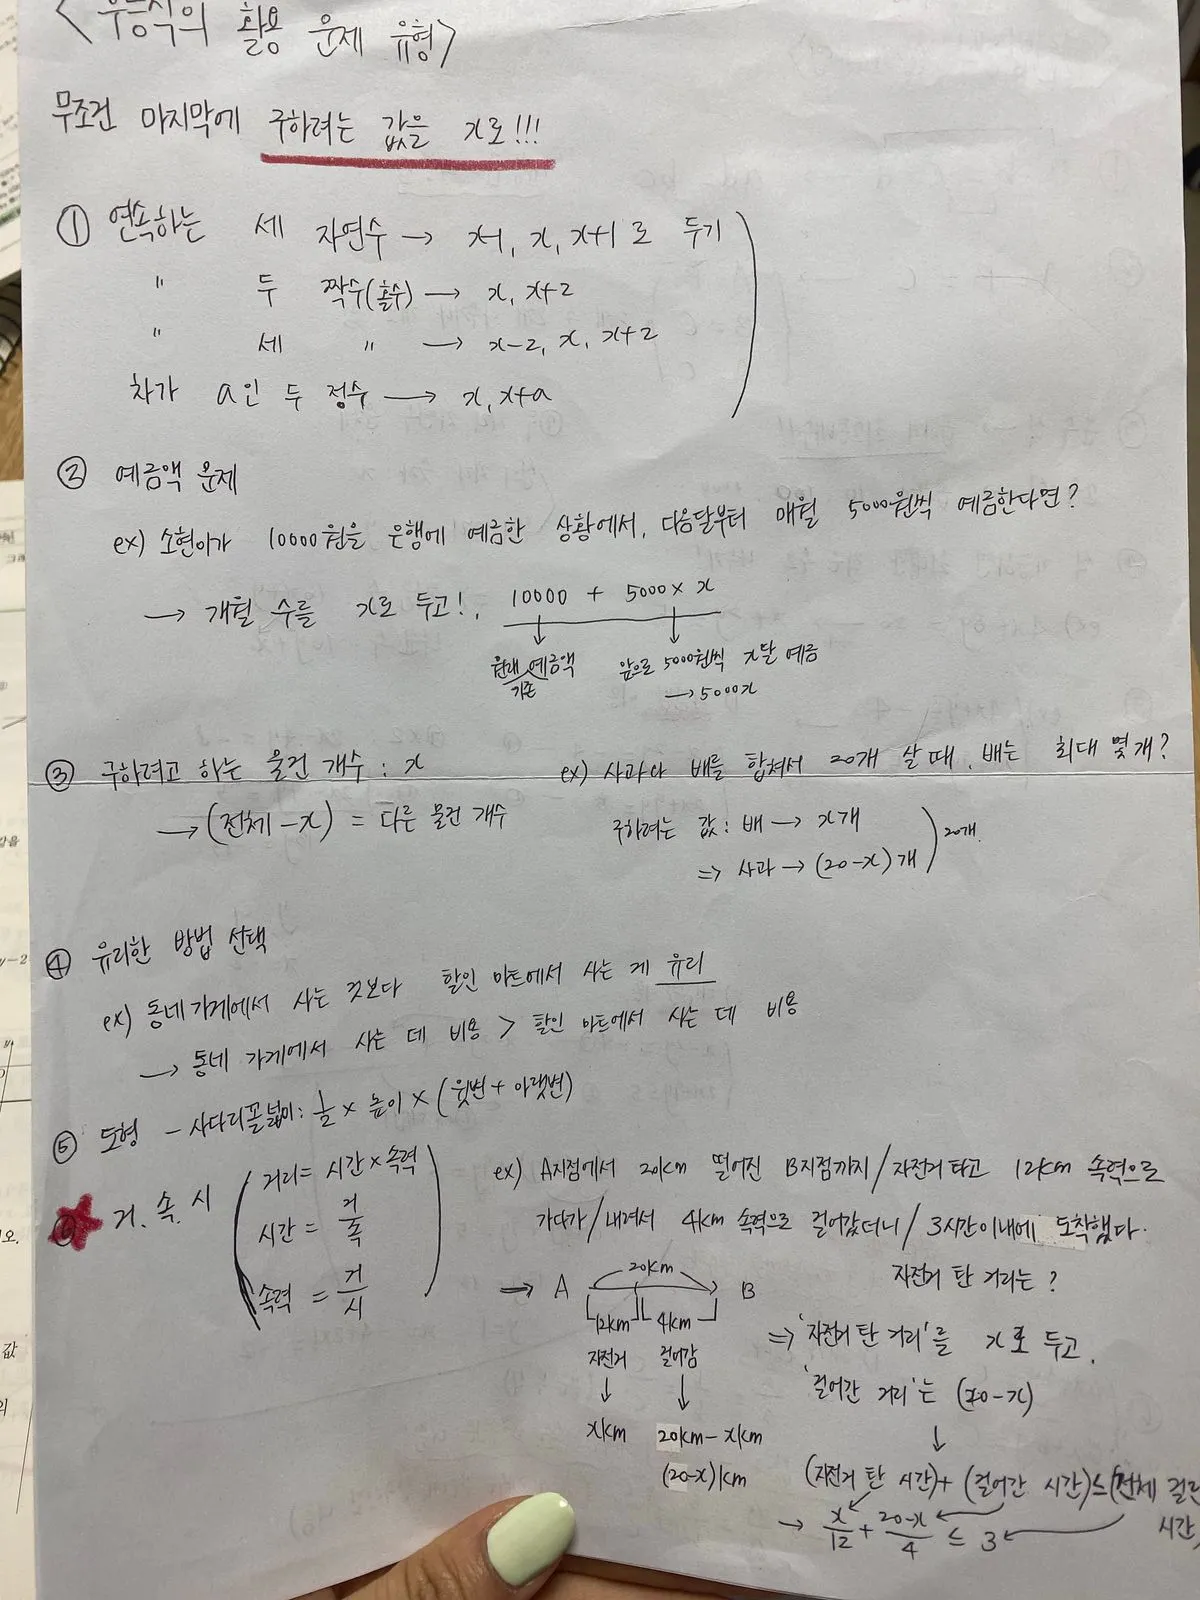 <부등식의 활용 문제 유형>
무조건 마지막에 구하려는 값을 x로!!!
① 연속하는 세 자연수 → x-1, x, x+1 로 두기
" 두 짝수(홀수) → x, x+2
" 세 " → x-2, x, x+2
차가 a인 두 정수 → x, x+a
② 예금액 문제
ex) 소현이가 10000원을 은행에 예금한 상황에서, 다음달부터 매월 5000원씩 예금한다면?
→ 개월 수를 x로 두고!, 10000 + 5000 × x
원래 예금액 앞으로 5000원씩 x달 예금
기존 → 5000x
③ 구하려고 하는 물건 개수 : x
→ (전체 - x) = 다른 물건 개수
ex) 사과와 배를 합쳐서 20개 살 때, 배는 최대 몇 개?
구하려는 값 : 배 → x개
⇒ 사과 → (20-x)개
20개.
④ 유리한 방법 선택
ex) 동네 가게에서 사는 것보다 할인 마트에서 사는 게 유리
→ 동네 가게에서 사는 데 비용 > 할인 마트에서 사는 데 비용
⑤ 도형 - 사다리꼴 넓이 : ½ × 높이 × (윗변 + 아랫변)
⑥ 거. 속. 시
거리 = 시간 × 속력
시간 = 거/속
속력 = 거/시
ex) A지점에서 20km 떨어진 B지점까지 / 자전거 타고 12km 속력으로
가다가 / 내려서 4km 속력으로 걸어갔더니 / 3시간 이내에 도착했다.
자전거 탄 거리는?
→ A 20km B
12km 4km
자전거 걸어감
↓ ↓
xkm 20km - xkm
(20-x)km
⇒ '자전거 탄 거리'를 x로 두고,
'걸어간 거리'는 (20-x)
↓
(자전거 탄 시간) + (걸어간 시간) ≤ (전체 걸린
시간)
→ x/12 + 20-x/4 ≤ 3